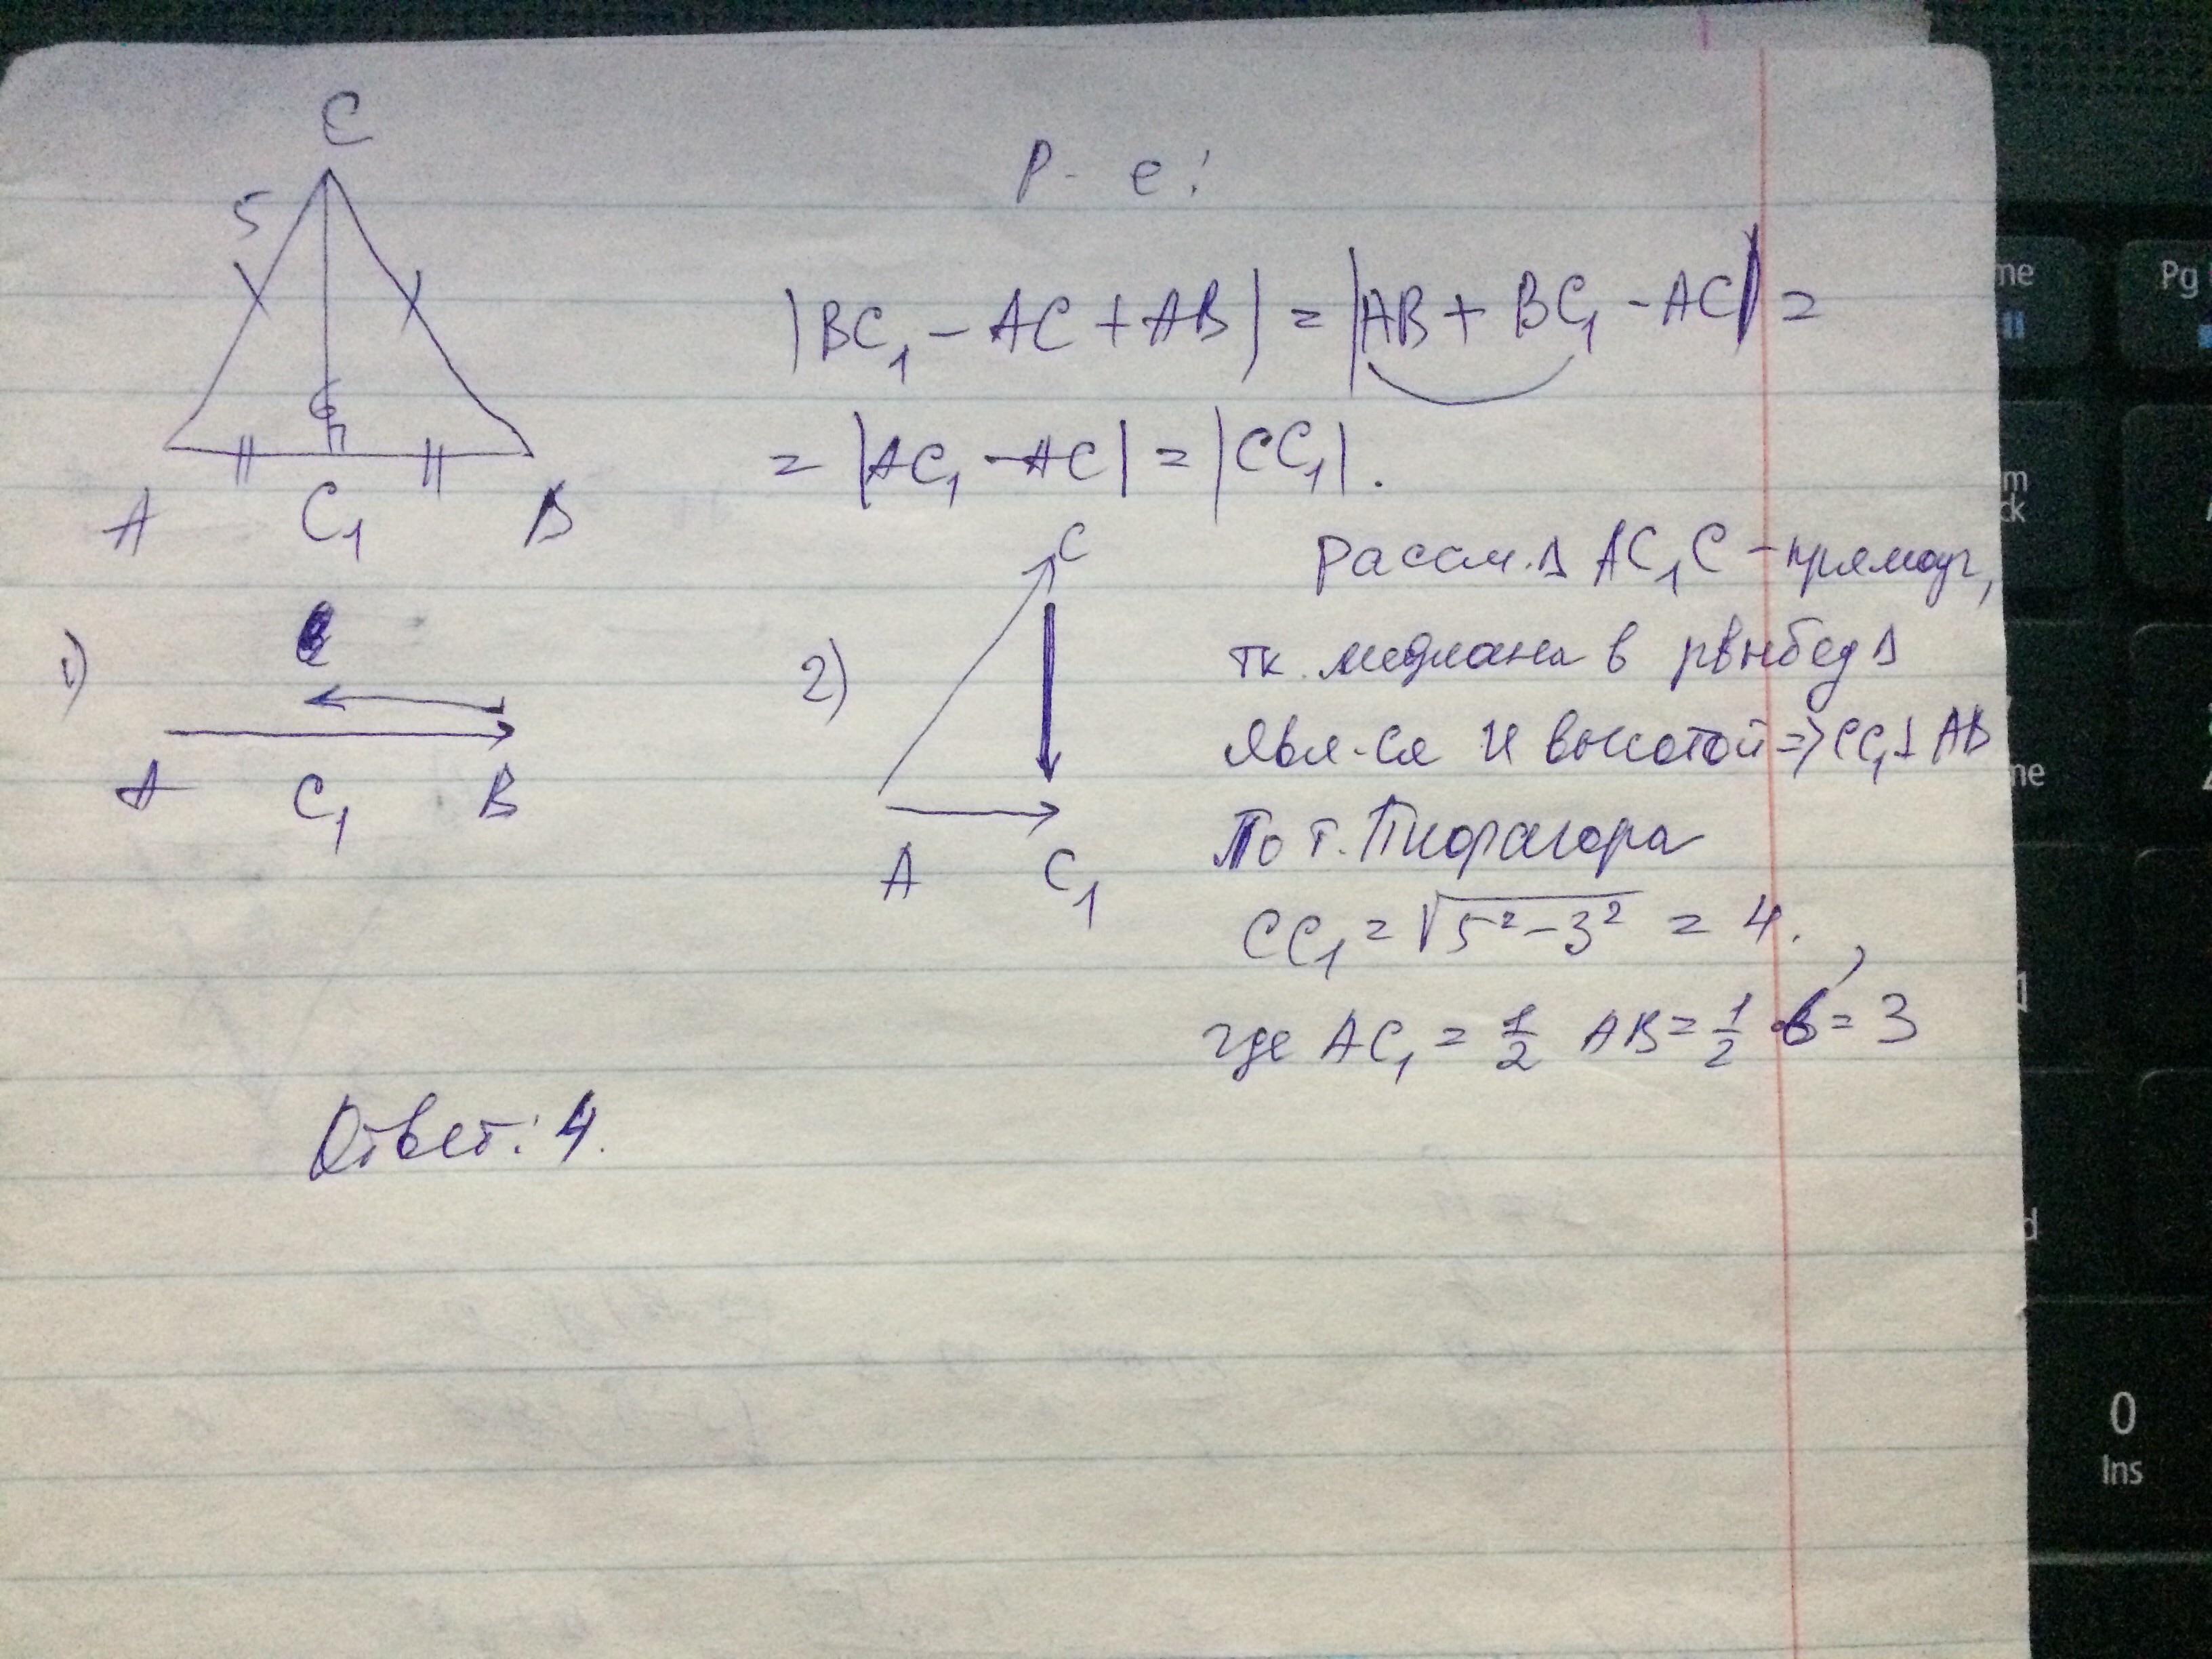 C
5
6
A C₁ B
Р-е:
|BC₁ - AC + AB| = |AB + BC₁ - AC| =
= |AC₁ - AC| = |CC₁|.
1)
A C₁ B
2)
C
A C₁
Рассм. Δ AC₁C - прямоуг,
тк. медиана в рвнбед Δ
явл-ся и высотой => CC₁ ⊥ AB
По т. Пифагора
CC₁ = √5² - 3² = 4.,
где AC₁ = 1/2 AB = 1/2 · 6 = 3
Ответ: 4.
me
Pg
m
ck
me
d
0
Ins